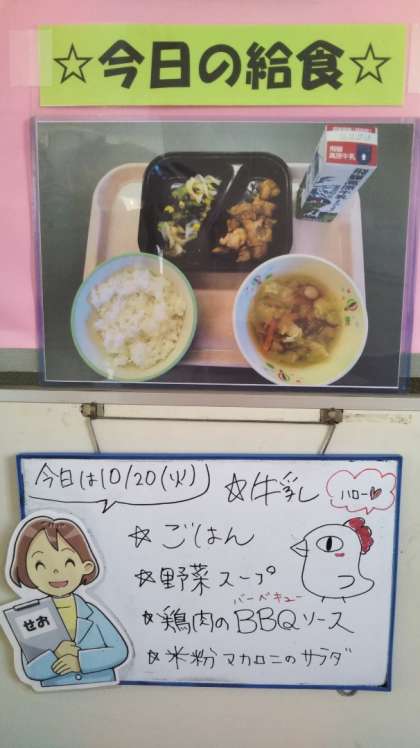 ☆今日の給食☆
今日は10/20(火)
☆牛乳
ハロー♥
☆ごはん
☆野菜スープ
バーベキュー
☆鶏肉のBBQソース
☆米粉マカロニのサラダ
せお